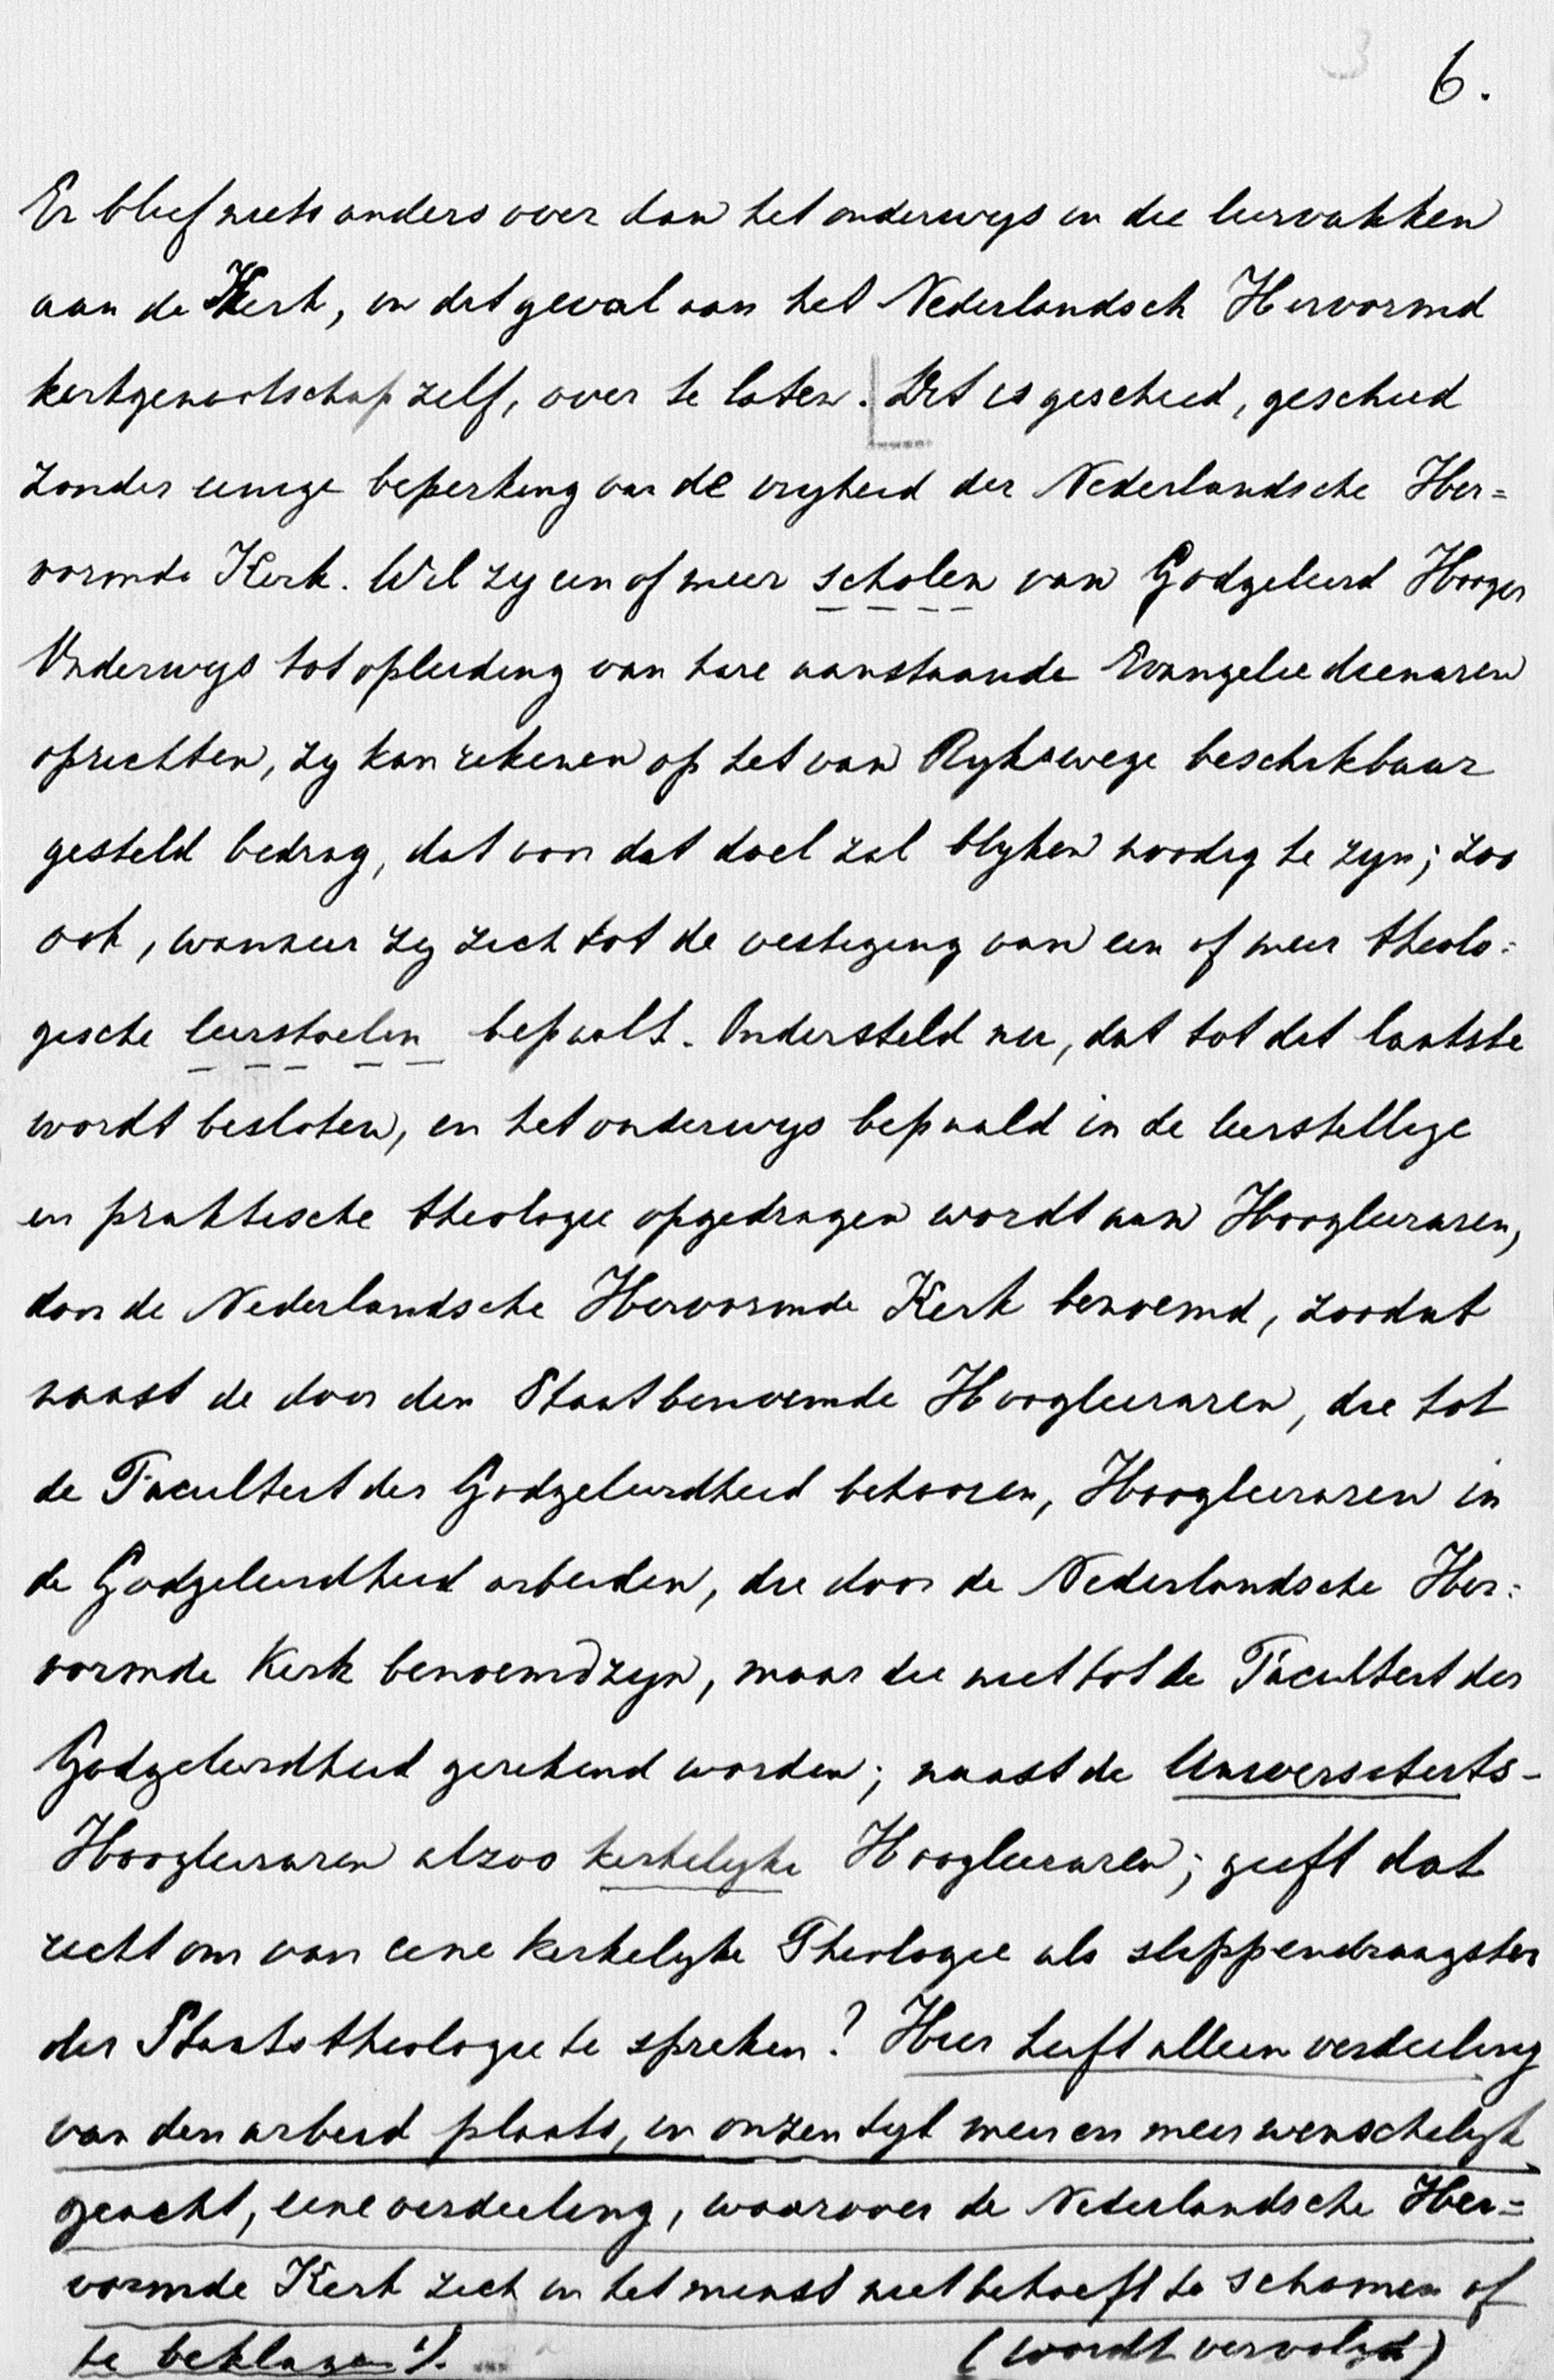 6.
Er bleef niets anders over dan het onderwijs in die leervakken
aan de Kerk, in dit geval aan het Nederlandsch Hervormd
kerkgenootschap zelf, over te laten. Dit is geschied, geschied
zonder eenige beperking van de vrijheid der Nederlandsche Her=
vormde Kerk. Wil zij een of meer scholen van Godgeleerd Hooger
Onderwijs tot opleiding van hare aanstaande Evangeliedienaren
oprichten, zij kan rekenen op het van Rijkswege beschikbaar
gesteld bedrag, dat voor dat doel zal blijken noodig te zijn; zoo
ook, wanneer zij zich tot de vestiging van een of meer theolo=
gische leerstoelen bepaalt. Ondersteld nu, dat tot dit laatste
wordt besloten, en het onderwijs bepaald in de leerstellige
en praktische theologie opgedragen wordt aan Hoogleeraren,
door de Nederlandsche Hervormde Kerk benoemd, zoodat
naast de door den Staat benoemde Hoogleeraren, die tot
de Faculteit der Godgeleerdheid behooren, Hoogleeraren in
de Godgeleerdheid arbeiden, die door de Nederlandsche Her=
vormde Kerk benoemd zijn, maar die niet tot de Faculteit der
Godgeleerdheid gerekend worden; naast de Universiteits-
Hoogleeraren alzoo kerkelijke Hoogleeraren; geeft dat
recht om van eene kerkelijke Theologie als slippendraagster
der Staatstheologie te spreken? Hier heeft alleen verdeeling
van den arbeid plaats, in onzen tijd meer en meer wenschelijk
geacht, eene verdeeling, waarover de Nederlandsche Her=
vormde Kerk zich in het minst niet behoeft te schamen of
te beklagen 1). (wordt vervolgd)